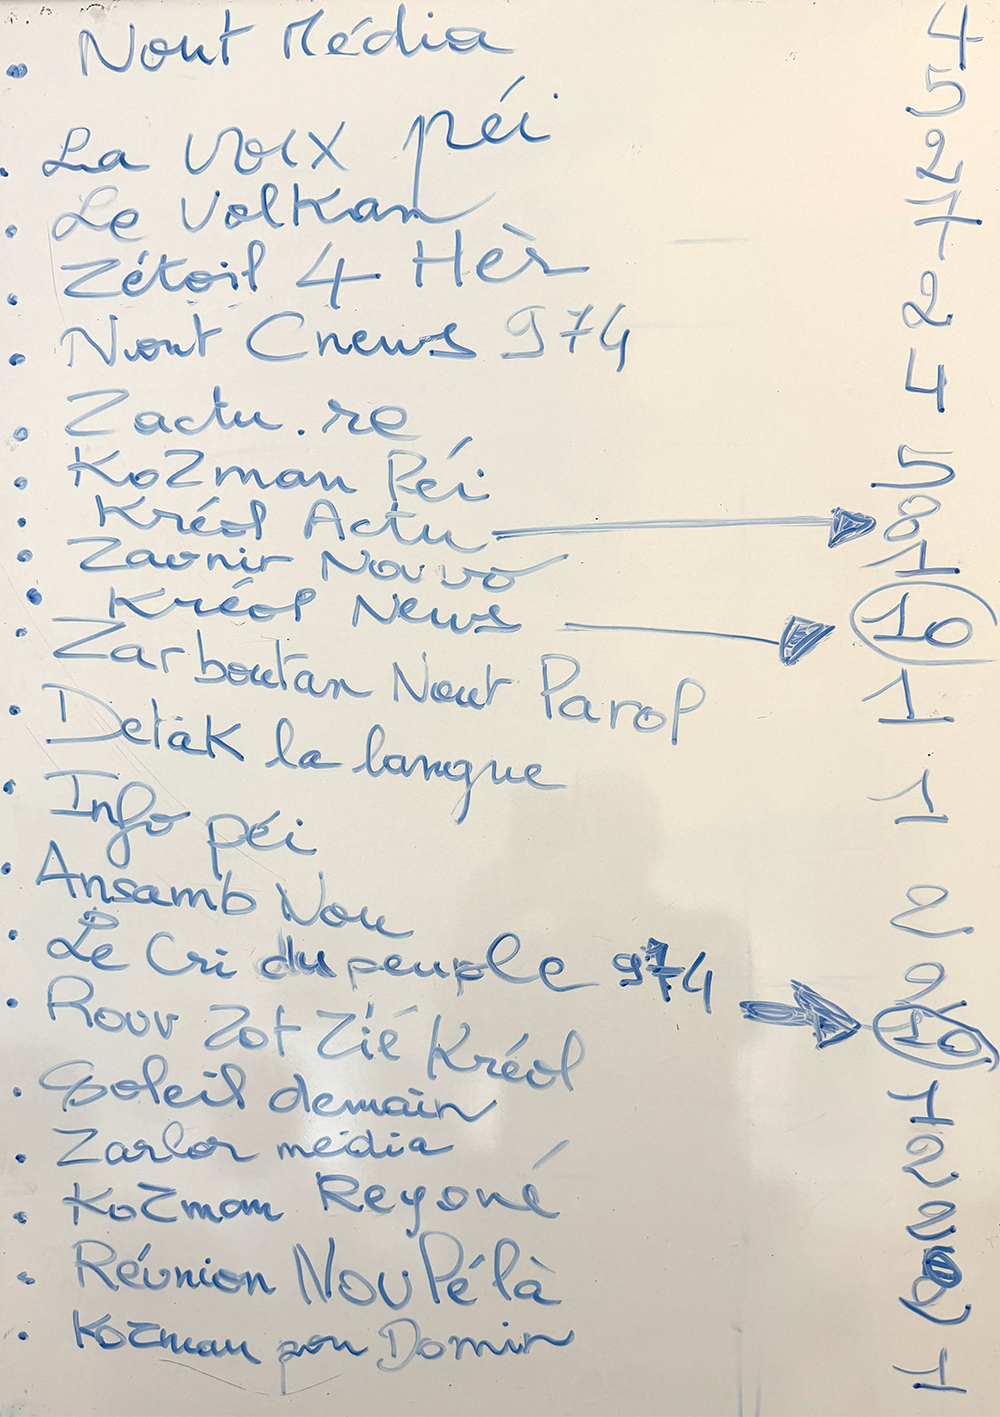 • Nout Média 4
• La Voix péi 5
• Le Volkan 2
• Zétoil 4 Hèr 7
• Nout Cnews 974 2
• Zactu.re 4
• Kozman Péi 5
• Kréol Actu 8
• Zavnir Nouvo 1
• Kréol News 10
• Zarboutan Nout Parol 1
• Detak la langue 1
• Info péi
• Ansamb Nou 2
• Le Cri du peuple 974 2
• Rouv Zot Zié Kréol 10
• Soleil demain 1
• Zarlor média 2
• Kozman Reyoné 2
• Réunion Nou Pé là 2
• Kozman pou Domin 1